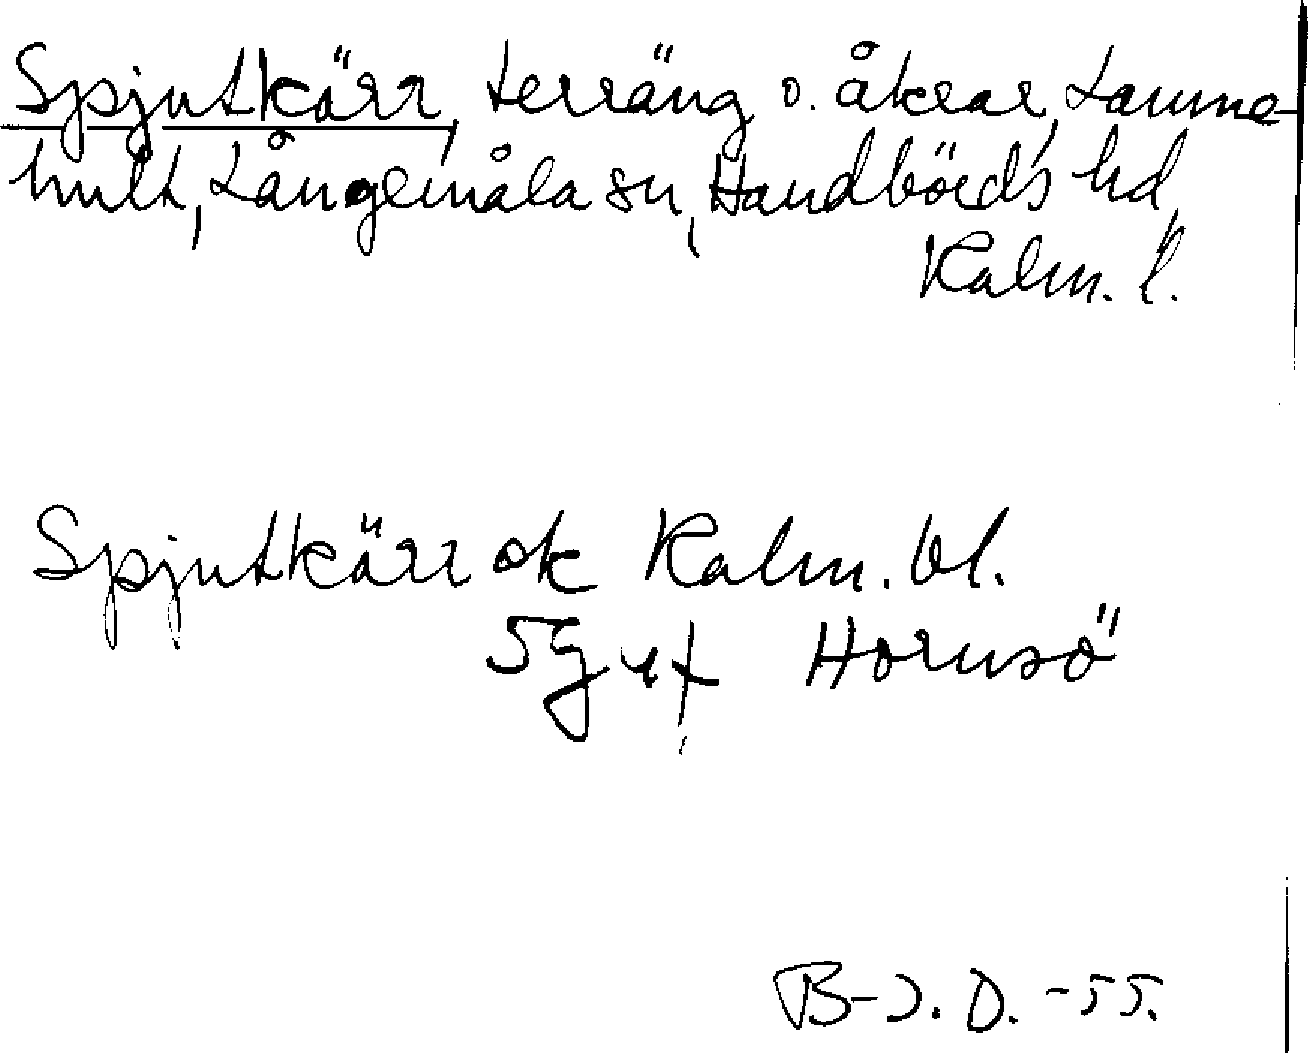 Spjutkärr, terräng o. åkrar, Lamme-
hult, Långemåla sn, Handbörds hd,
Kalm. l.
Spjutkärr ek Kalm. bl.
5g Hornsö
B-J. D. -55.